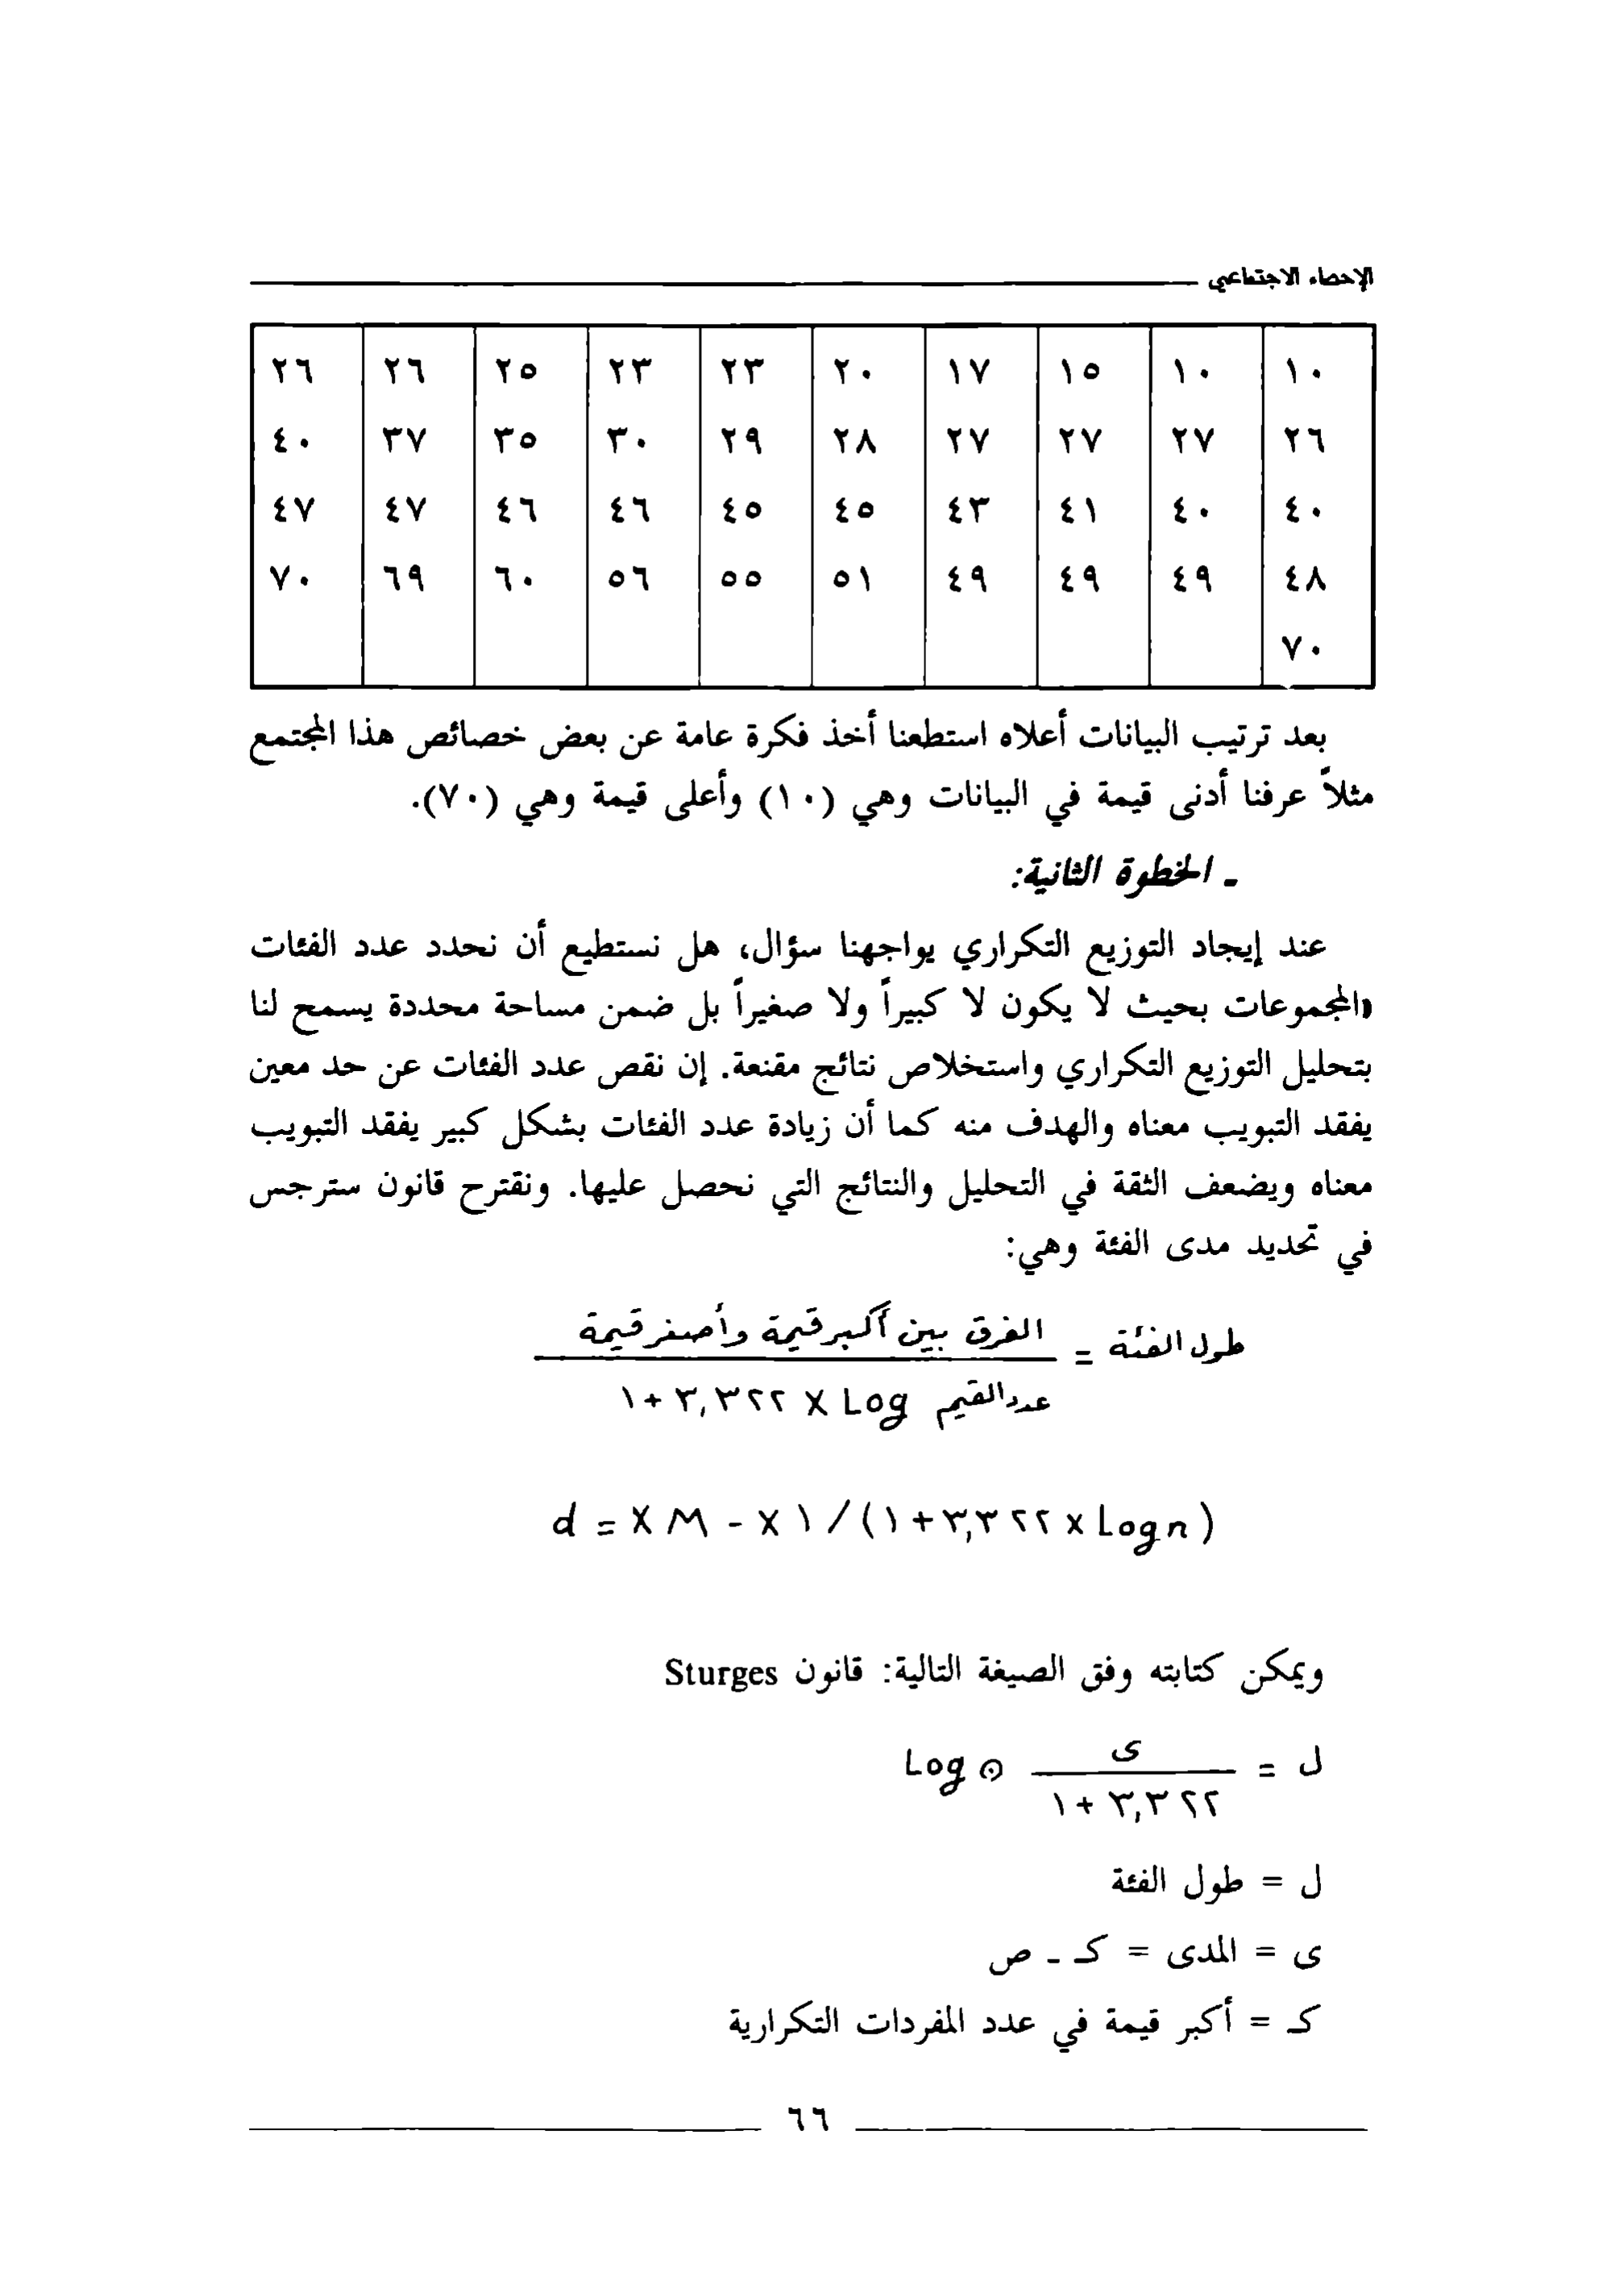 الإحصاء الاجتماعي
١٠ ١٠ ١٥ ١٧ ٢٠ ٢٣ ٢٣ ٢٥ ٢٦ ٢٦
٢٦ ٢٧ ٢٧ ٢٧ ٢٨ ٢٩ ٣٠ ٣٥ ٣٧ ٤٠
٤٠ ٤٠ ٤١ ٤٣ ٤٥ ٤٥ ٤٦ ٤٦ ٤٧ ٤٧
٤٨ ٤٩ ٤٩ ٤٩ ٥١ ٥٥ ٥٦ ٦٠ ٦٩ ٧٠
٧٠
بعد ترتيب البيانات أعلاه استطعنا أخذ فكرة عامة عن بعض خصائص هذا المجتمع
مثلاً عرفنا أدنى قيمة في البيانات وهي (١٠) وأعلى قيمة وهي (٧٠).
ـ الخطوة الثانية:
عند إيجاد التوزيع التكراري يواجهنا سؤال، هل نستطيع أن نحدد عدد الفئات
«المجموعات بحيث لا يكون لا كبيراً ولا صغيراً بل ضمن مساحة محددة يسمح لنا
بتحليل التوزيع التكراري واستخلاص نتائج مقنعة. إن نقص عدد الفئات عن حد معين
يفقد التبويب معناه والهدف منه كما أن زيادة عدد الفئات بشكل كبير يفقد التبويب
معناه ويضعف الثقة في التحليل والنتائج التي نحصل عليها. ونقترح قانون سترجس
في تحديد مدى الفئة وهي:
طول الفئة = الفرق بين أكبر قيمة وأصغر قيمة
١ + ٣,٣٢٢ X Log عدد القيم
d = X M - X ١ / (١ + ٣,٣٢٢ x Log n)
ويمكن كتابته وفق الصيغة التالية: قانون Sturges
ل = ى Log ن
١ + ٣,٣٢٢
ل = طول الفئة
ى = المدى = كـ ـ ص
كـ = أكبر قيمة في عدد المفردات التكرارية
٦٦